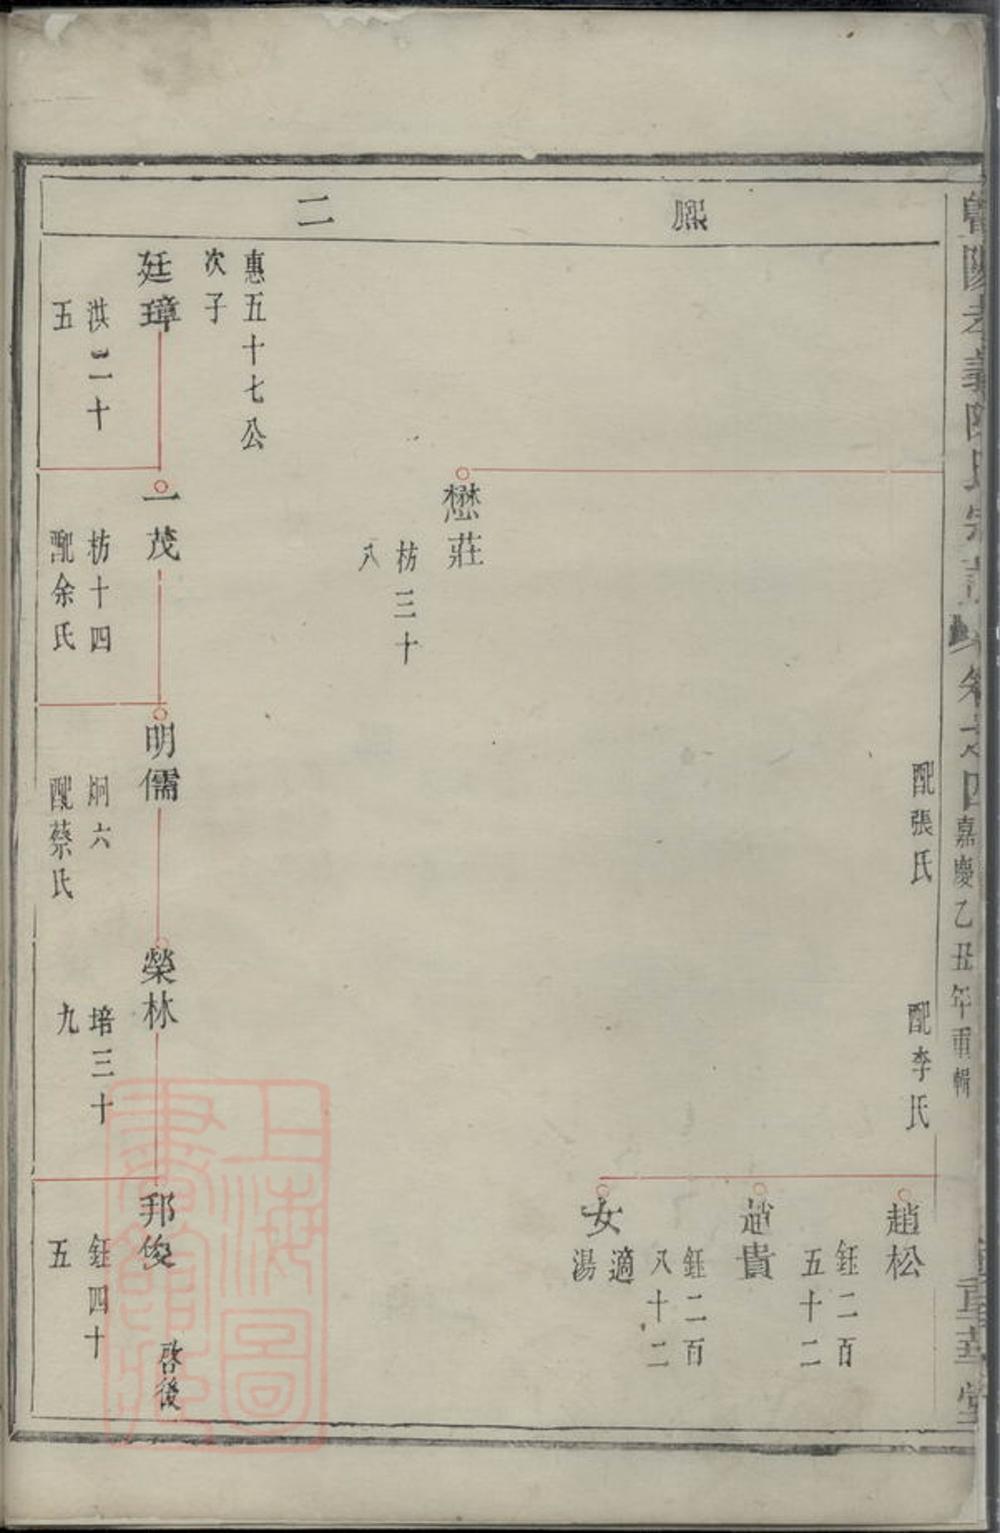 暨陽孝義陳氏宗譜
卷之四
嘉慶乙丑年重輯
重華堂
熙
二
配張氏
配李氏
趙松
鈺二百
五十二
趙貴
鈺二百
八十二
女
適
湯
懋莊
枋三十
八
惠五十七公
次子
廷璋
洪二十
五
一茂
枋十四
配余氏
明儒
炯六
配蔡氏
榮林
培三十
九
邦俊
啓後
鈺四十
五
上海圖
書館藏